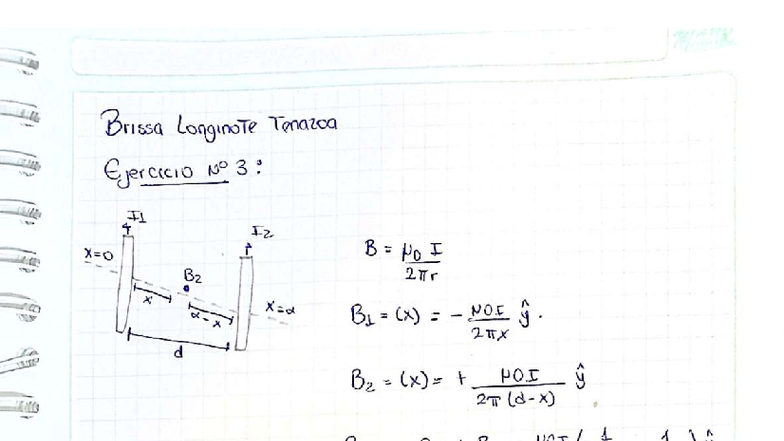 Brissa Longinote Tenazoa
Ejercicio Nº 3:
I1
I2
x=0
B2
x
d-x
x=d
d
B = μ0 I / 2πr
B1 = (x) = - μ0I / 2πx ŷ.
B2 = (x) = + μ0I / 2π(d-x) ŷ